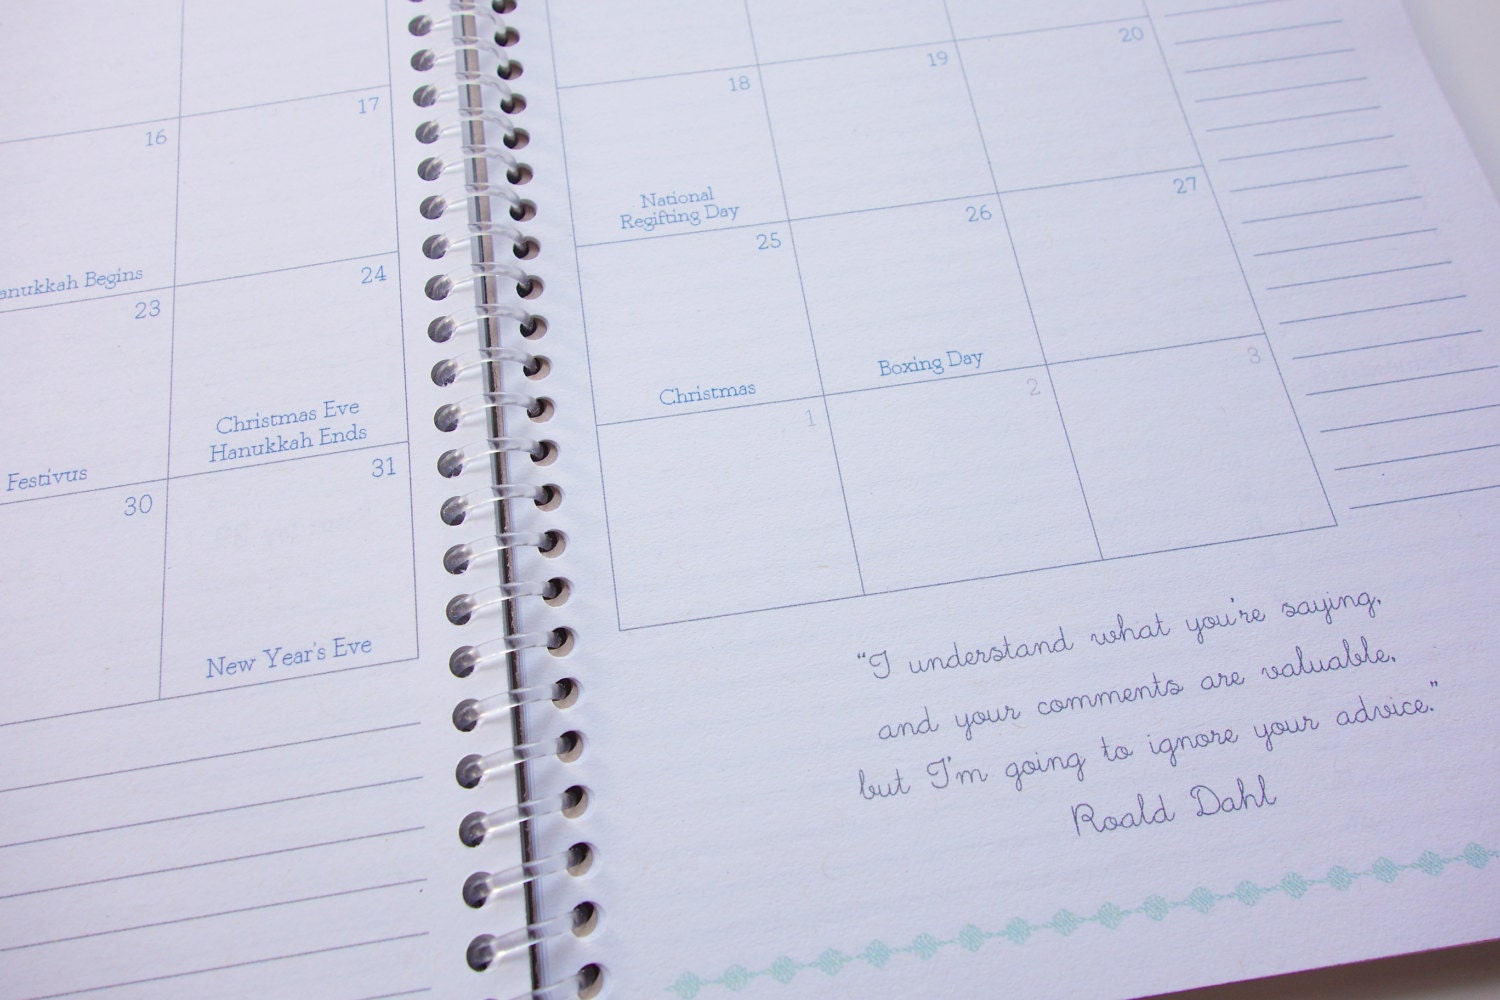 16
17
anukkah Begins
23
24
Festivus
Christmas Eve
Hanukkah Ends
30
31
New Year's Eve
18
19
20
National
Regifting Day
25
26
27
Christmas
Boxing Day
1
2
3
"I understand what you're saying,
and your comments are valuable,
but I'm going to ignore your advice."
Roald Dahl